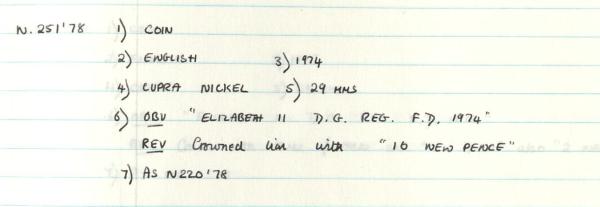 N. 251'78 1) COIN
2) ENGLISH 3) 1974
4) CUPRA NICKEL 5) 29 MMS
6) OBV "ELIZABETH II D.G. REG. F.D. 1974"
REV Crowned lion with "10 NEW PENCE"
7) AS N220'78